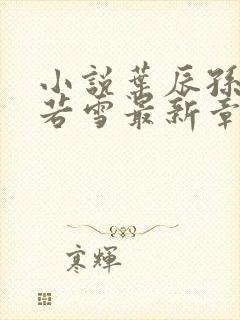 小說葉辰孫
若雪最新章
寒輝